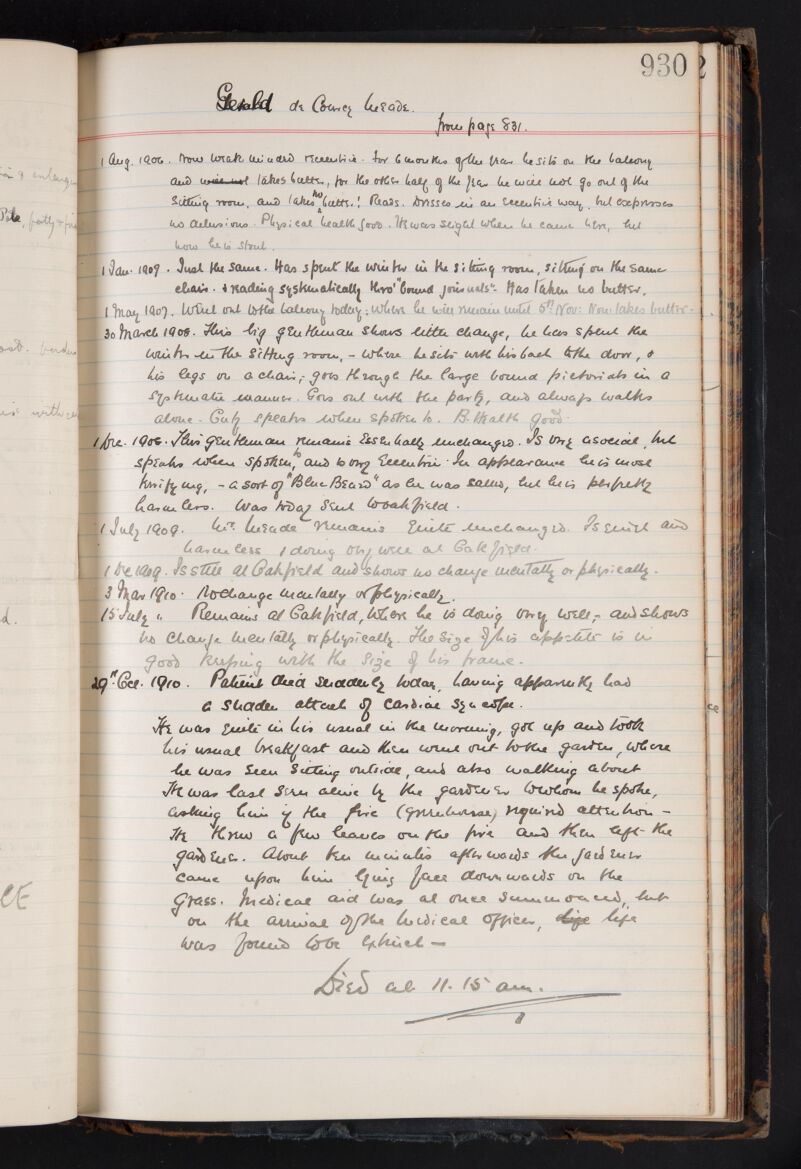 930
Gerald de Courcy Meade.
from page 831.
1 Aug. 1906. Now weak minded & eccentric. For 6 months of the year he sits on the balcony
and will not takes butter, for the other half of the year he will not go out of the
sitting room, and takes no butter! Reads. Dresses in an eccentric way, but expresses
no delusions. Physical health good. He was slight when he came here, but
now he is stout.
1 Jan. 1907. Just the same. Has spent the winter in the sitting room, sitting on the same
chair. & reading systematically thro' "bound journals". Has taken no butter.
1 May 1907. Went out to the balcony today; where he will remain until 5th Nov: Now takes butter.
30 March 1908. This big gentleman shows little change, he has spent the
winter in the sitting room, - where he sits with his back to the door, &
his legs on a chair; goes through the large bound pictorials in a
systematic manner. Goes out with the party, and always walks
alone. Only speaks when spoken to. B. Health good.
1 Dec. 1908. This gentleman remains essentially unchanged. Is very asocial, but
speaks when spoken to, and is very eccentric. In appearance he is most
terrifying, - a sort of "Blue Beard" as he was called, but he is perfectly
harmless. Was today sent to Oakfield.
1 July 1909. Mr. Meade remains quite unchanged. Is quiet and
harmless & doing very well at Oakfield.
1 Dec 1909. Is still at Oakfield and shows no change mentally or physically.
3 Mar 1910. No change mentally or physically.
15 July " Remains at Oakfield, where he is doing very well, - and shows
no change mentally or physically. The size of his appetite is in
good keeping with the size of his frame.
29th Oct. 1910. Patient died suddenly today, having apparently had
a sudden attack of cardiac syncope.
He was quite in his usual in the morning, got up and took
his usual breakfast and then went out to the garden, where
he was seen sitting outside, and also walking about
He was last seen alive by the gardener to whom he spoke,
asking him if the fire (greenhouse) required attention -
He threw a few leaves on the fire and then left the
gardener. About ten minutes afterwards the gardener
came upon him lying face downwards on the
grass. Medical aid was at once summoned, but
on the arrival of the medical officer, life life
was found to be extinct -
Died at 11.15 am.